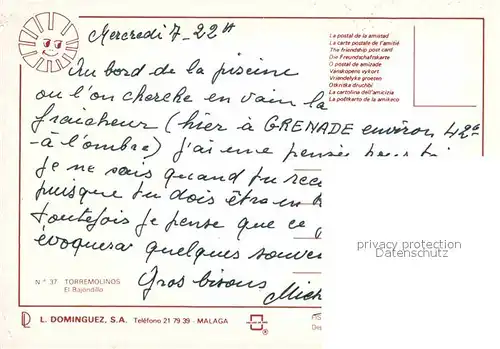 Mercredi 7 - 22H
Au bord de la piscine
ou l'on cherche en vain la
fraicheur (hier à GRENADE environ 42°
à l'ombre) j'ai une pensée
Je ne sais quand tu
puisque tu dois être en
toutefois je pense que ce
évoquera quelques
Gros bisous
La postal de la amistad
La carte postale de l'amitié
The friendship post card
Die Freundschaftskarte
O postal de amizade
Vänskapens vykort
Vriendelyke groeten
Otkritka druchbi
La cartolina dell'amicizia
La poŝtkarto de la amikeco
privacy protection
Datenschutz
N.º 37 TORREMOLINOS
El Bajondillo
L. DOMINGUEZ, S.A. Teléfono 21 79 39 - MALAGA